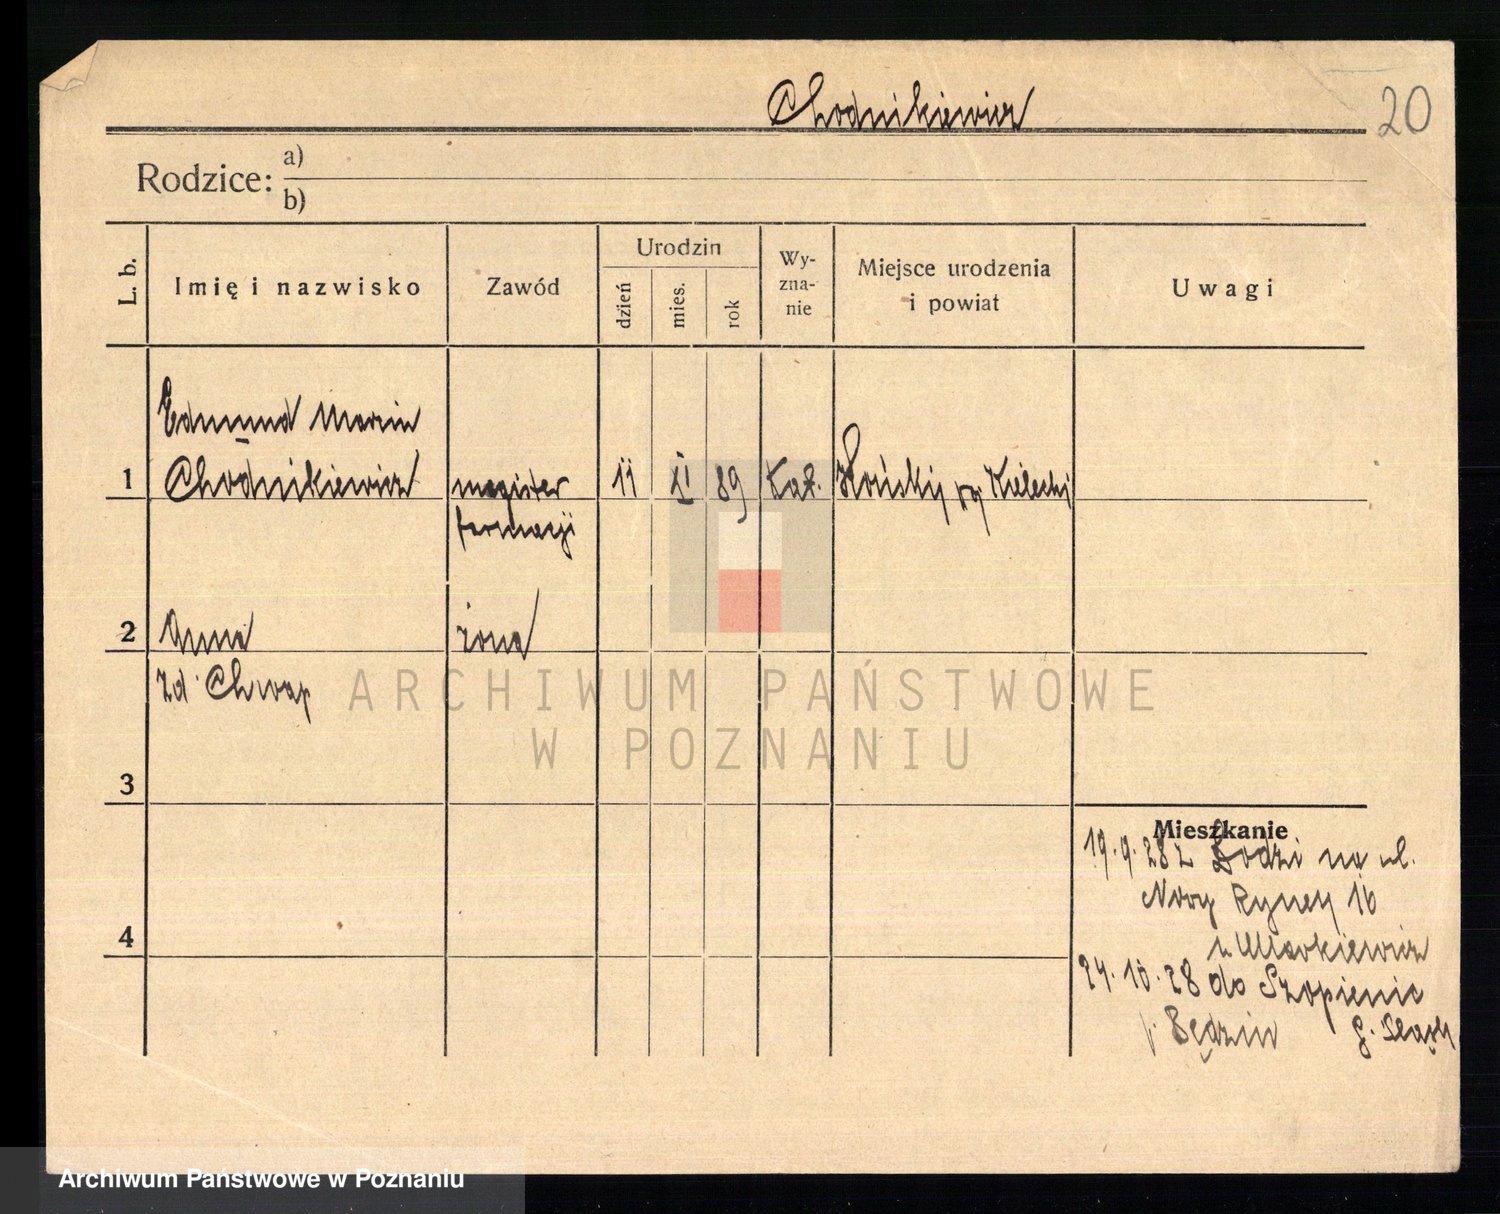 Chodnikiewicz
20
Rodzice: a)
b)
L. b.
Imię i nazwisko
Zawód
Urodzin
dzień
mies.
rok
Wy-
zna-
nie
Miejsce urodzenia
i powiat
Uwagi
Edmund Marcin
1 Chodnikiewicz magister 11 XI 89 Kat. Kielecki
farmacji
2 Anna żona
zd Chwap
ARCHIWUM PAŃSTWOWE
W POZNANIU
3
Mieszkanie
19.9.28 z Łodzi na ul.
Nowy Rynek 16
u Markiewicz
4
24.10.28 do Szopienic
p. Będzin G. Śląsk
Archiwum Państwowe w Poznaniu